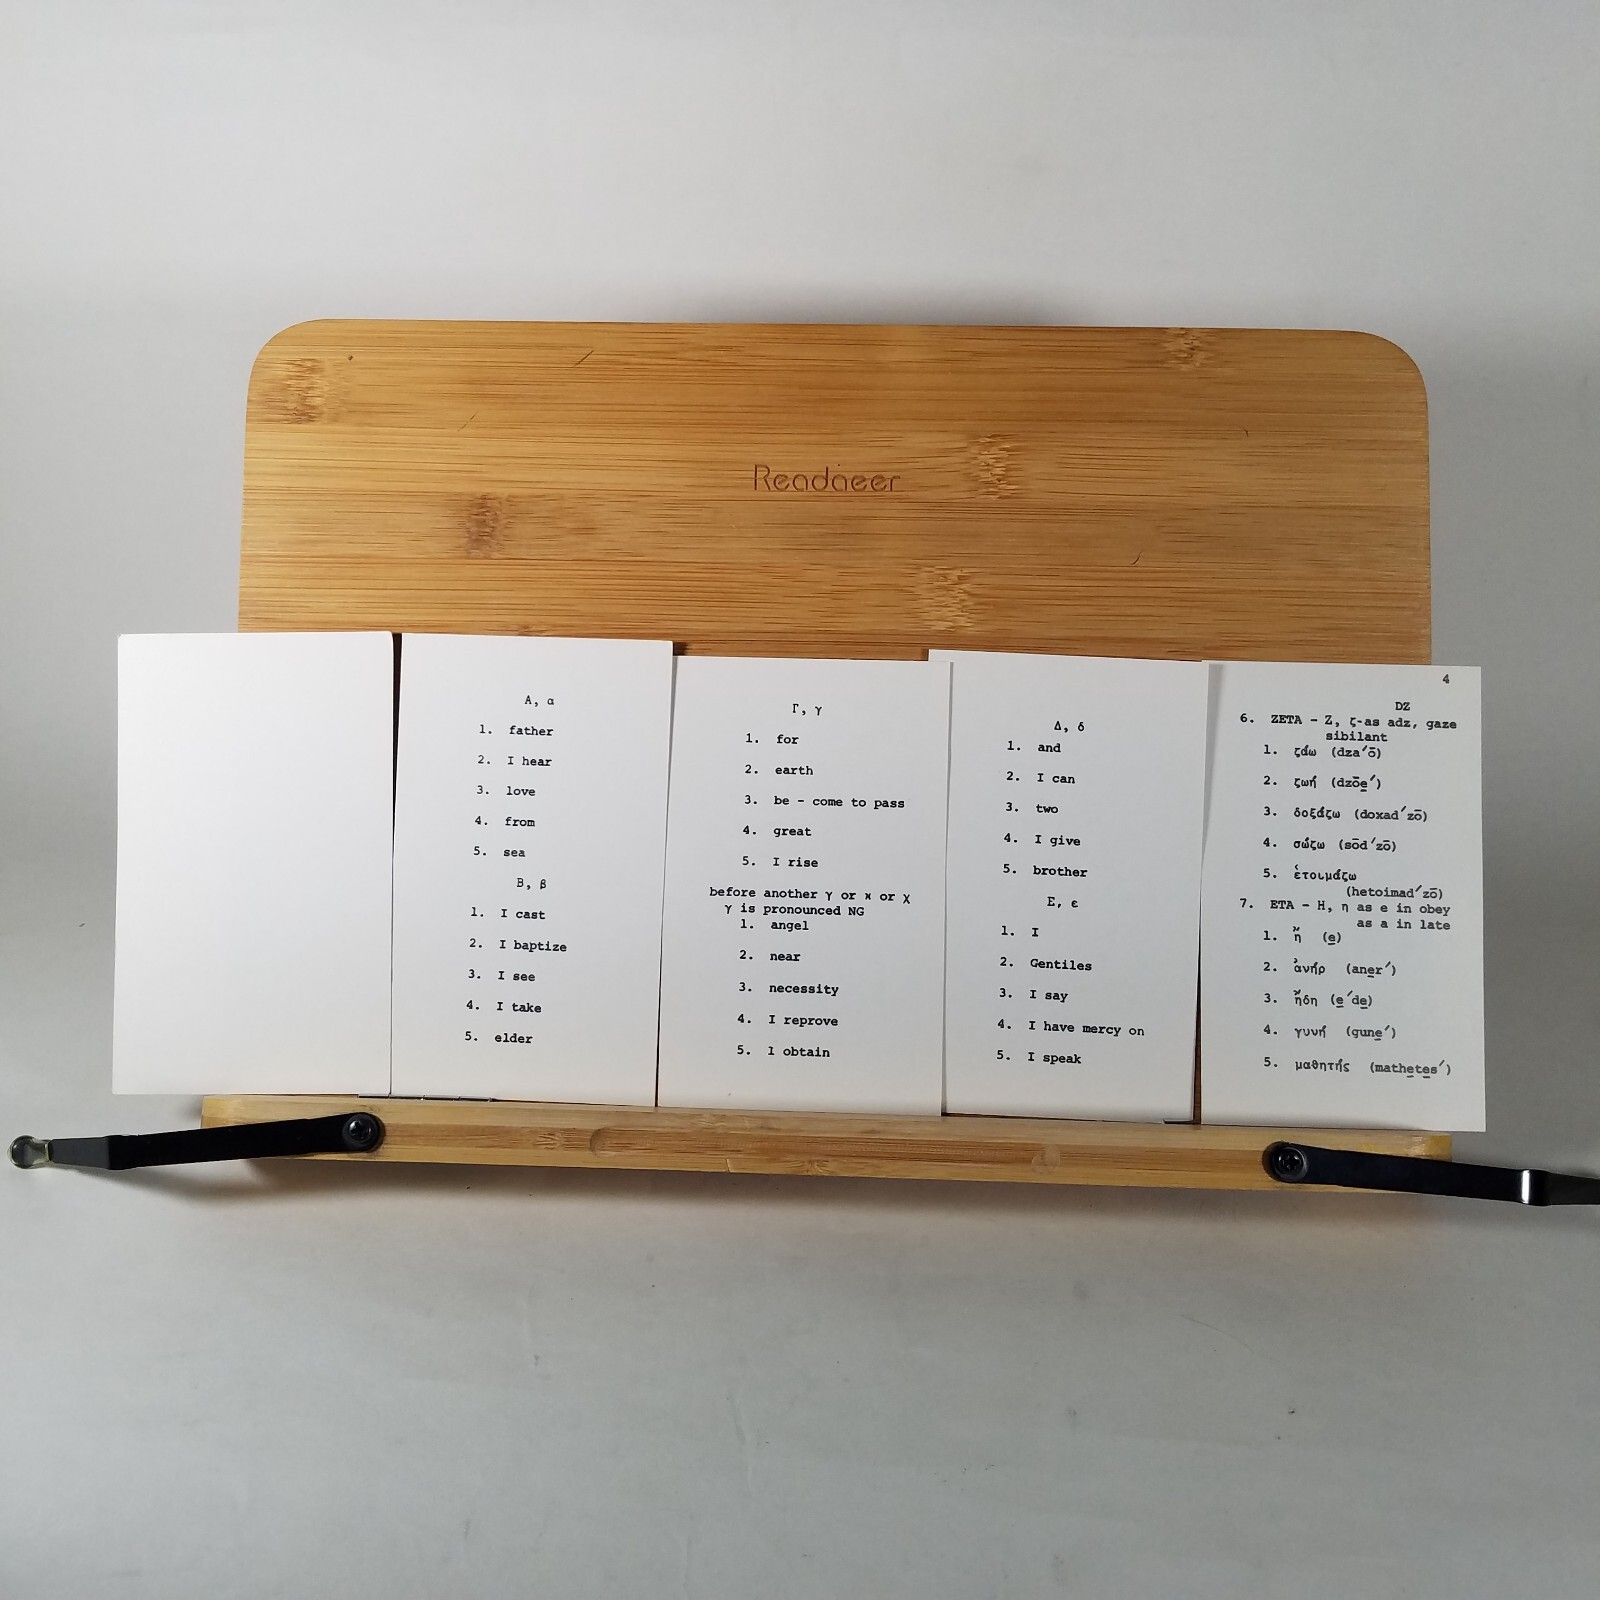 Readaeer
A, α
1. father
2. I hear
3. love
4. from
5. sea
B, β
1. I cast
2. I baptize
3. I see
4. I take
5. elder
Γ, γ
1. for
2. earth
3. be - come to pass
4. great
5. I rise
before another γ or κ or χ
γ is pronounced NG
1. angel
2. near
3. necessity
4. I reprove
5. I obtain
Δ, δ
1. and
2. I can
3. two
4. I give
5. brother
E, ε
1. I
2. Gentiles
3. I say
4. I have mercy on
5. I speak
4
DZ
6. ZETA - Z, ζ-as adz, gaze
sibilant
1. ζάω (dza′ō)
2. ζωή (dzōe′)
3. δοξάζω (doxad′zō)
4. σώζω (sōd′zō)
5. ἑτοιμάζω
(hetoimad′zō)
7. ETA - H, η as e in obey
as a in late
1. ἤ (e)
2. ἀνήρ (aner′)
3. ἤδη (e′de)
4. γυνή (gune′)
5. μαθητής (mathetes′)